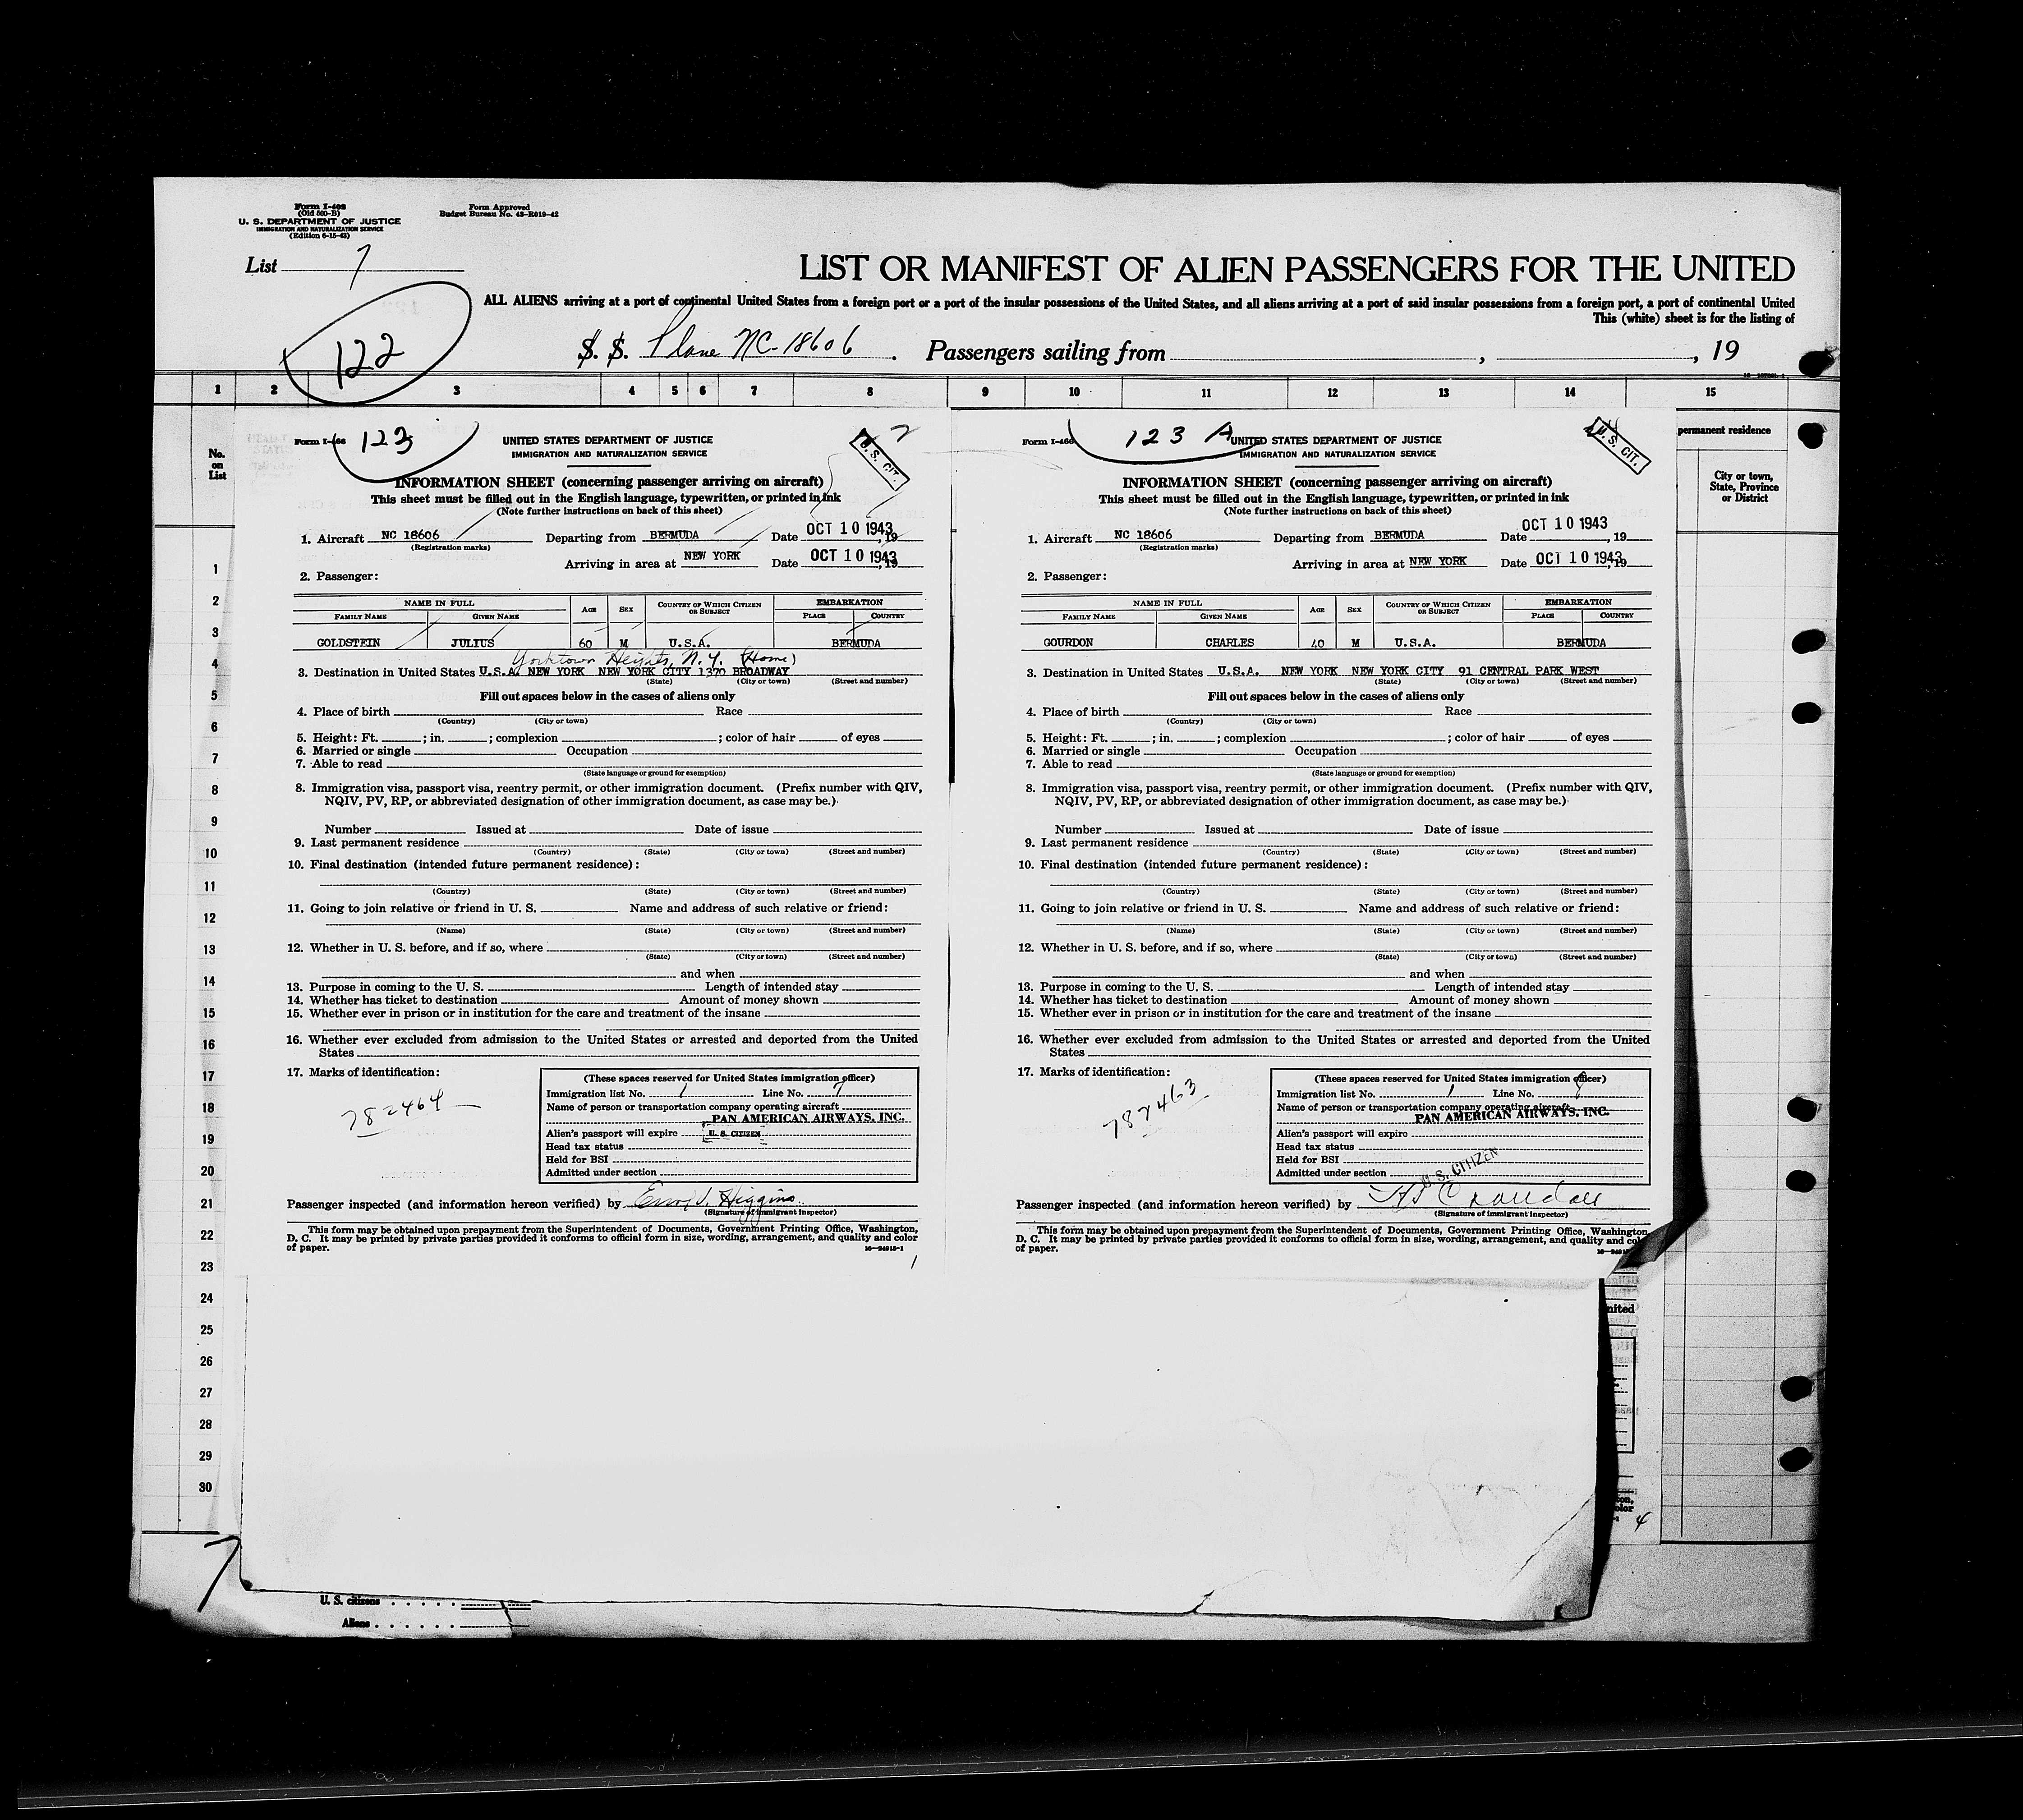 Form I-466
(Old 500-B)
U. S. DEPARTMENT OF JUSTICE
IMMIGRATION AND NATURALIZATION SERVICE
(Edition 6-15-43)
Form Approved
Budget Bureau No. 43-R019-42
List 7
LIST OR MANIFEST OF ALIEN PASSENGERS FOR THE UNITED
ALL ALIENS arriving at a port of continental United States from a foreign port or a port of the insular possessions of the United States, and all aliens arriving at a port of said insular possessions from a foreign port, a port of continental United
This (white) sheet is for the listing of
122
S. S. Plane NC-18606. Passengers sailing from , , 19
1 2 3 4 5 6 7 8 9 10 11 12 13 14 15
No. on List
permanent residence
City or town, State, Province or District
1
2
3
4
5
6
7
8
9
10
11
12
13
14
15
16
17
18
19
20
21
22
23
24
25
26
27
28
29
30
7
U. S. citizens
Aliens
Form I-466
123
UNITED STATES DEPARTMENT OF JUSTICE
IMMIGRATION AND NATURALIZATION SERVICE
2
U. S. CIT.
INFORMATION SHEET (concerning passenger arriving on aircraft)
This sheet must be filled out in the English language, typewritten, or printed in ink
(Note further instructions on back of this sheet)
1. Aircraft NC 18606 Departing from BERMUDA Date OCT 10 1943, 19
(Registration marks)
Arriving in area at NEW YORK Date OCT 10 1943, 19
2. Passenger:
NAME IN FULL AGE SEX COUNTRY OF WHICH CITIZEN OR SUBJECT EMBARKATION
FAMILY NAME GIVEN NAME PLACE COUNTRY
GOLDSTEIN JULIUS 60 M U.S.A. BERMUDA
Yorktown Heights, N.Y. (Home)
3. Destination in United States U.S.A. NEW YORK NEW YORK CITY 1370 BROADWAY
(State) (City or town) (Street and number)
Fill out spaces below in the cases of aliens only
4. Place of birth Race
(Country) (City or town)
5. Height: Ft. ; in. ; complexion ; color of hair of eyes
6. Married or single Occupation
7. Able to read
(State language or ground for exemption)
8. Immigration visa, passport visa, reentry permit, or other immigration document. (Prefix number with QIV,
NQIV, PV, RP, or abbreviated designation of other immigration document, as case may be.)
Number Issued at Date of issue
9. Last permanent residence
(Country) (State) (City or town) (Street and number)
10. Final destination (intended future permanent residence):
(Country) (State) (City or town) (Street and number)
11. Going to join relative or friend in U. S. Name and address of such relative or friend:
(Name) (State) (City or town) (Street and number)
12. Whether in U. S. before, and if so, where
(State) (City or town) (Street and number)
and when
13. Purpose in coming to the U. S. Length of intended stay
14. Whether has ticket to destination Amount of money shown
15. Whether ever in prison or in institution for the care and treatment of the insane
16. Whether ever excluded from admission to the United States or arrested and deported from the United
States
17. Marks of identification:
782464
(These spaces reserved for United States immigration officer)
Immigration list No. 1 Line No. 7
Name of person or transportation company operating aircraft
PAN AMERICAN AIRWAYS, INC.
Alien's passport will expire U. S. CITIZEN
Head tax status
Held for BSI
Admitted under section
Passenger inspected (and information hereon verified) by Higgins
(Signature of immigrant inspector)
This form may be obtained upon prepayment from the Superintendent of Documents, Government Printing Office, Washington,
D. C. It may be printed by private parties provided it conforms to official form in size, wording, arrangement, and quality and color
of paper.
Form I-466
123 A
UNITED STATES DEPARTMENT OF JUSTICE
IMMIGRATION AND NATURALIZATION SERVICE
U. S. CIT.
INFORMATION SHEET (concerning passenger arriving on aircraft)
This sheet must be filled out in the English language, typewritten, or printed in ink
(Note further instructions on back of this sheet)
1. Aircraft NC 18606 Departing from BERMUDA Date OCT 10 1943, 19
(Registration marks)
Arriving in area at NEW YORK Date OCT 10 1943, 19
2. Passenger:
NAME IN FULL AGE SEX COUNTRY OF WHICH CITIZEN OR SUBJECT EMBARKATION
FAMILY NAME GIVEN NAME PLACE COUNTRY
GOURDON CHARLES 40 M U.S.A. BERMUDA
3. Destination in United States U.S.A. NEW YORK NEW YORK CITY 91 CENTRAL PARK WEST
(State) (City or town) (Street and number)
Fill out spaces below in the cases of aliens only
4. Place of birth Race
(Country) (City or town)
5. Height: Ft. ; in. ; complexion ; color of hair of eyes
6. Married or single Occupation
7. Able to read
(State language or ground for exemption)
8. Immigration visa, passport visa, reentry permit, or other immigration document. (Prefix number with QIV,
NQIV, PV, RP, or abbreviated designation of other immigration document, as case may be.)
Number Issued at Date of issue
9. Last permanent residence
(Country) (State) (City or town) (Street and number)
10. Final destination (intended future permanent residence):
(Country) (State) (City or town) (Street and number)
11. Going to join relative or friend in U. S. Name and address of such relative or friend:
(Name) (State) (City or town) (Street and number)
12. Whether in U. S. before, and if so, where
(State) (City or town) (Street and number)
and when
13. Purpose in coming to the U. S. Length of intended stay
14. Whether has ticket to destination Amount of money shown
15. Whether ever in prison or in institution for the care and treatment of the insane
16. Whether ever excluded from admission to the United States or arrested and deported from the United
States
17. Marks of identification:
782463
(These spaces reserved for United States immigration officer)
Immigration list No. 1 Line No. 8
Name of person or transportation company operating aircraft
PAN AMERICAN AIRWAYS, INC.
Alien's passport will expire
Head tax status
Held for BSI
Admitted under section U. S. CITIZEN
Passenger inspected (and information hereon verified) by Crandall
(Signature of immigrant inspector)
This form may be obtained upon prepayment from the Superintendent of Documents, Government Printing Office, Washington,
D. C. It may be printed by private parties provided it conforms to official form in size, wording, arrangement, and quality and
of paper.
4